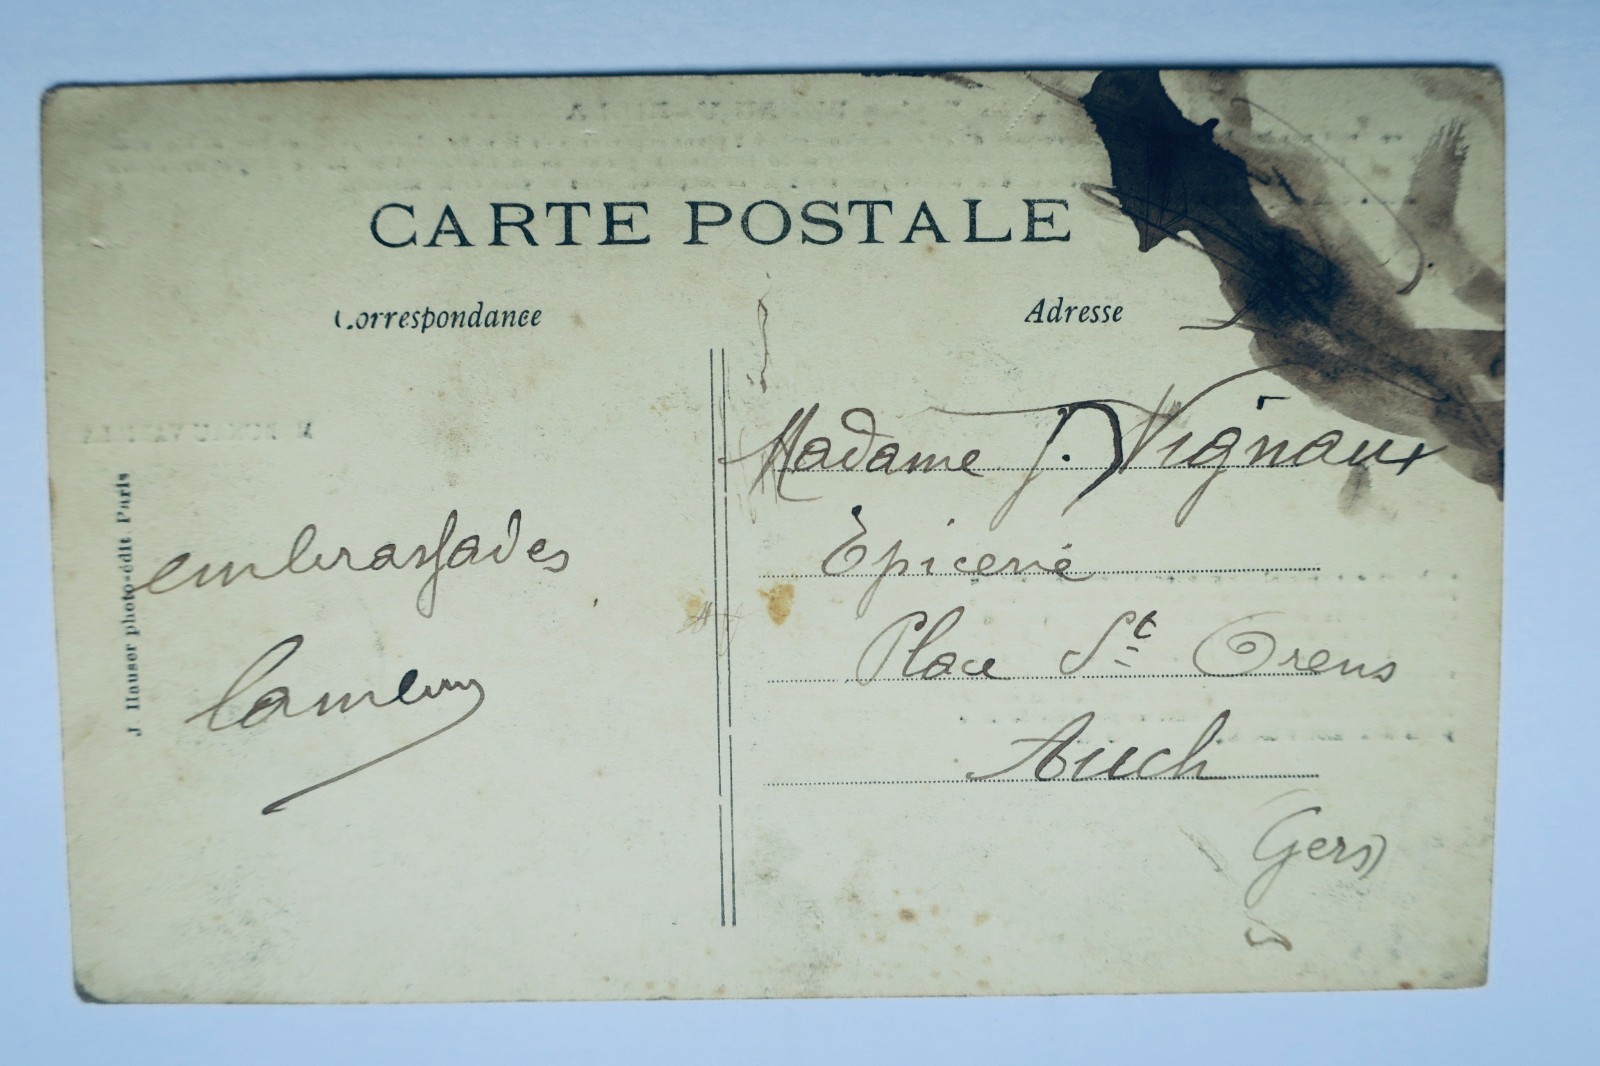 CARTE POSTALE
Correspondance
Adresse
Madame J. Vignaux
Épicerie
Place St Orens
Auch
Gers
embrassades
J Hauser photo-édit. Paris